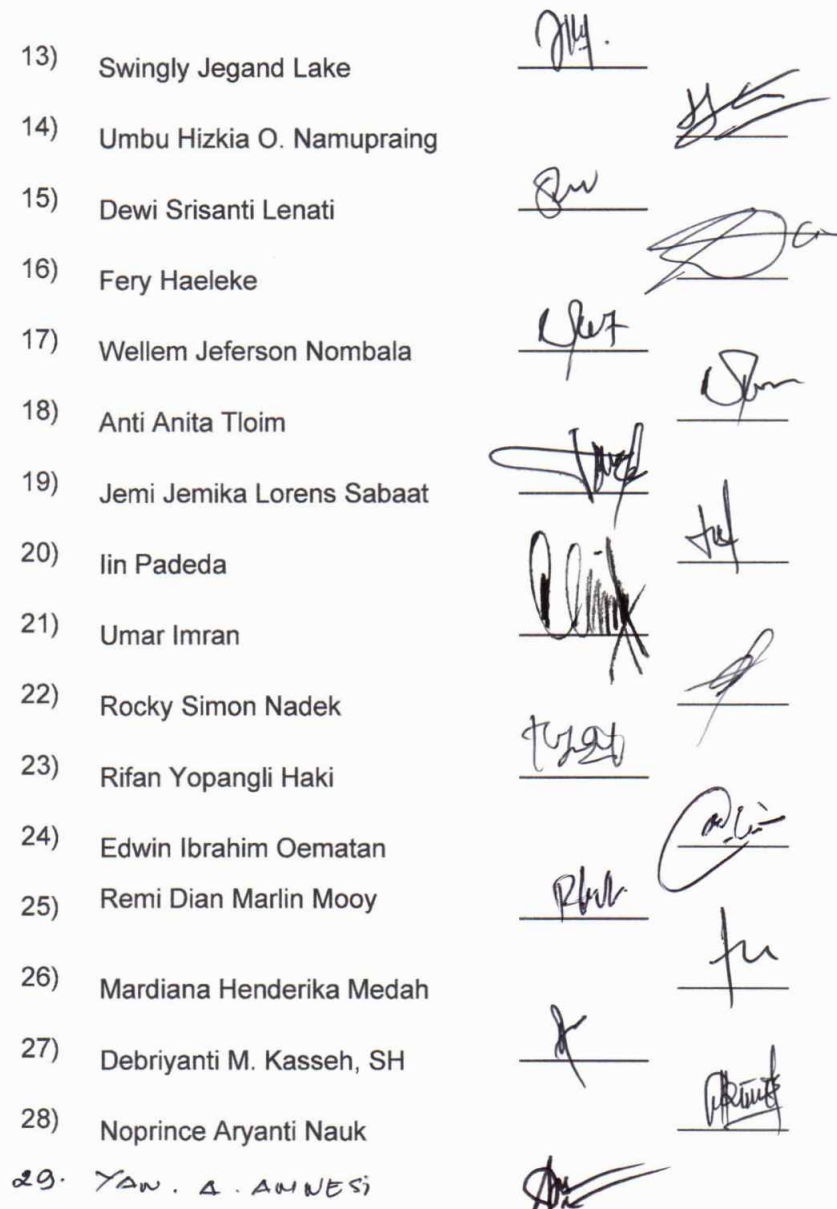 13) Swingly Jegand Lake
14) Umbu Hizkia O. Namupraing
15) Dewi Srisanti Lenati
16) Fery Haeleke
17) Wellem Jeferson Nombala
18) Anti Anita Tloim
19) Jemi Jemika Lorens Sabaat
20) Iin Padeda
21) Umar Imran
22) Rocky Simon Nadek
23) Rifan Yopangli Haki
24) Edwin Ibrahim Oematan
25) Remi Dian Marlin Mooy
26) Mardiana Henderika Medah
27) Debriyanti M. Kasseh, SH
28) Noprince Aryanti Nauk
29. YAN. A. AMNESi